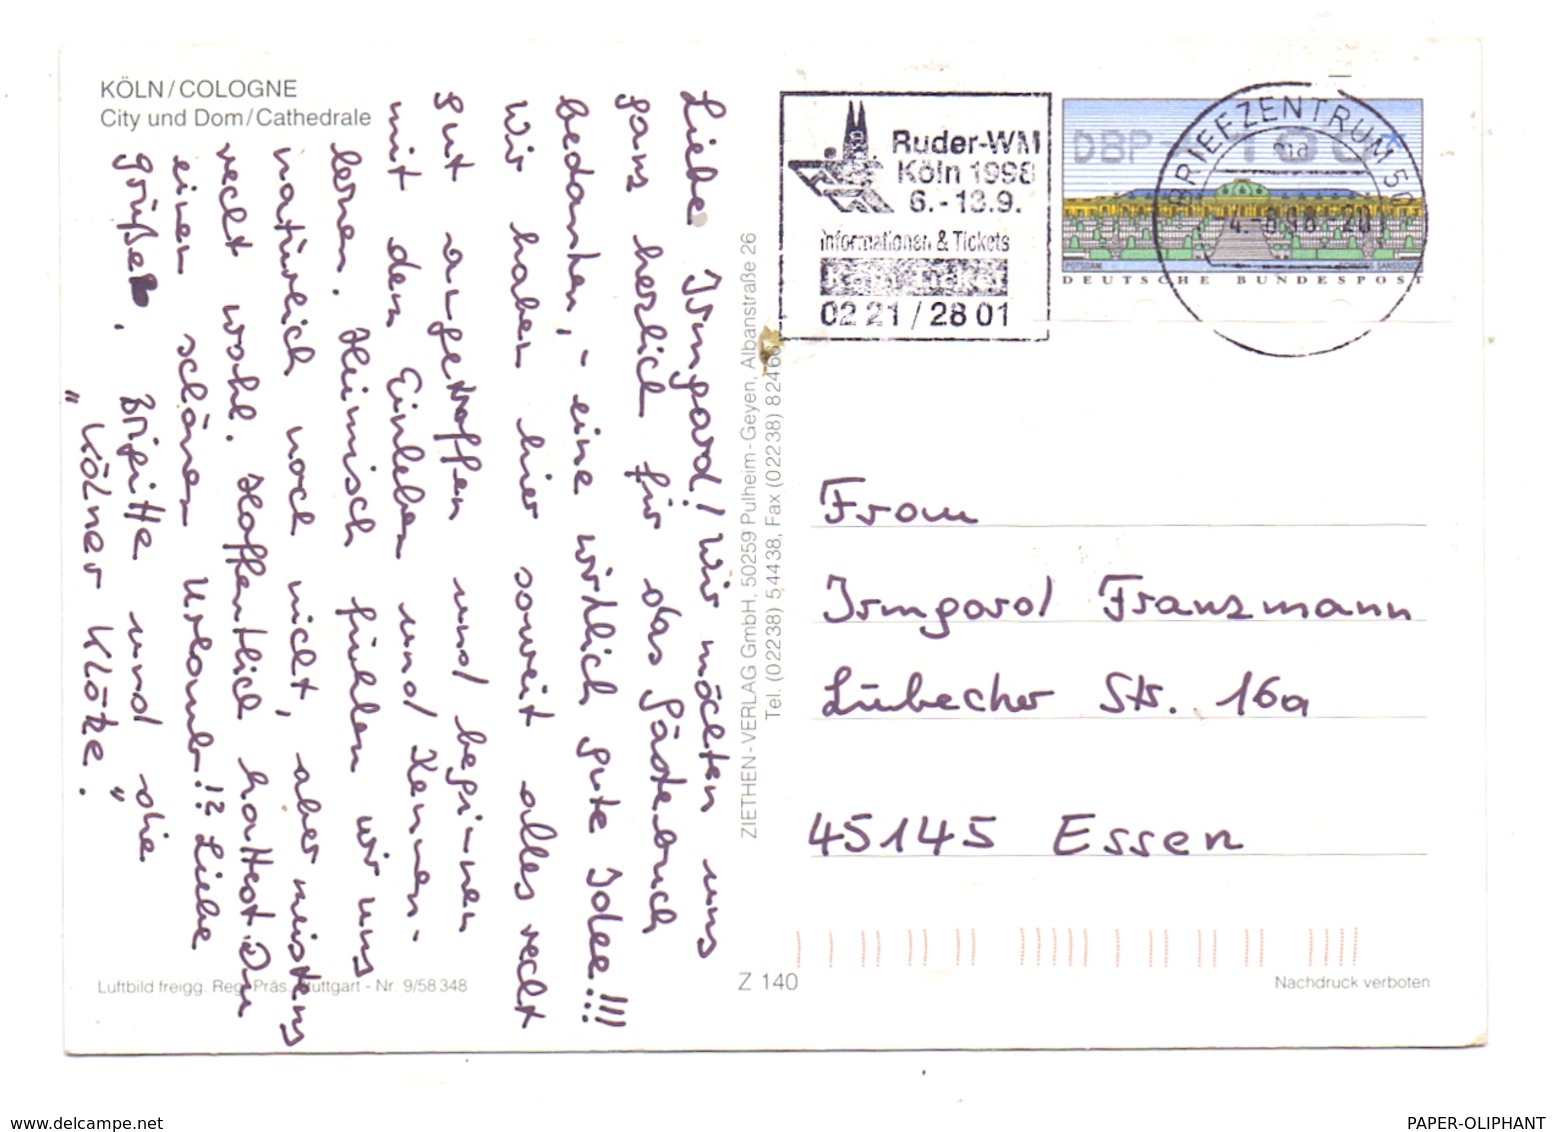 KÖLN/COLOGNE
City und Dom/Cathedrale
Liebe Irmgard! Wir möchten uns
ganz herzlich für das Gästebuch
bedanken, - eine wirklich gute Idee!!!
Wir haben hier soweit alles recht
gut angetroffen und beginnen
mit dem Einleben und Kennen-
lernen. Heimisch fühlen wir uns
natürlich noch nicht, aber meistens
recht wohl. Hoffentlich hattest Du
einen schönen Urlaub!? Liebe
Grüße, Brigitte und die
"Kölner Klötze."
Luftbild freigg. Reg. Präs. Stuttgart - Nr. 9/58 348
ZIETHEN-VERLAG GmbH, 50259 Pulheim-Geyen, Albanstraße 26
Tel. (02238) 54438, Fax (02238) 8246
Z 140
Ruder-WM
Köln 1998
6.-13.9.
Informationen & Tickets
02 21 / 28 01
DBP
BRIEFZENTRUM 50
POTSDAM
SCHLOSS SANSSOUCI
DEUTSCHE BUNDESPOST
Frau
Irmgard Franzmann
Lübecker Str. 16a
45145 Essen
Nachdruck verboten
www.delcampe.net
PAPER-OLIPHANT